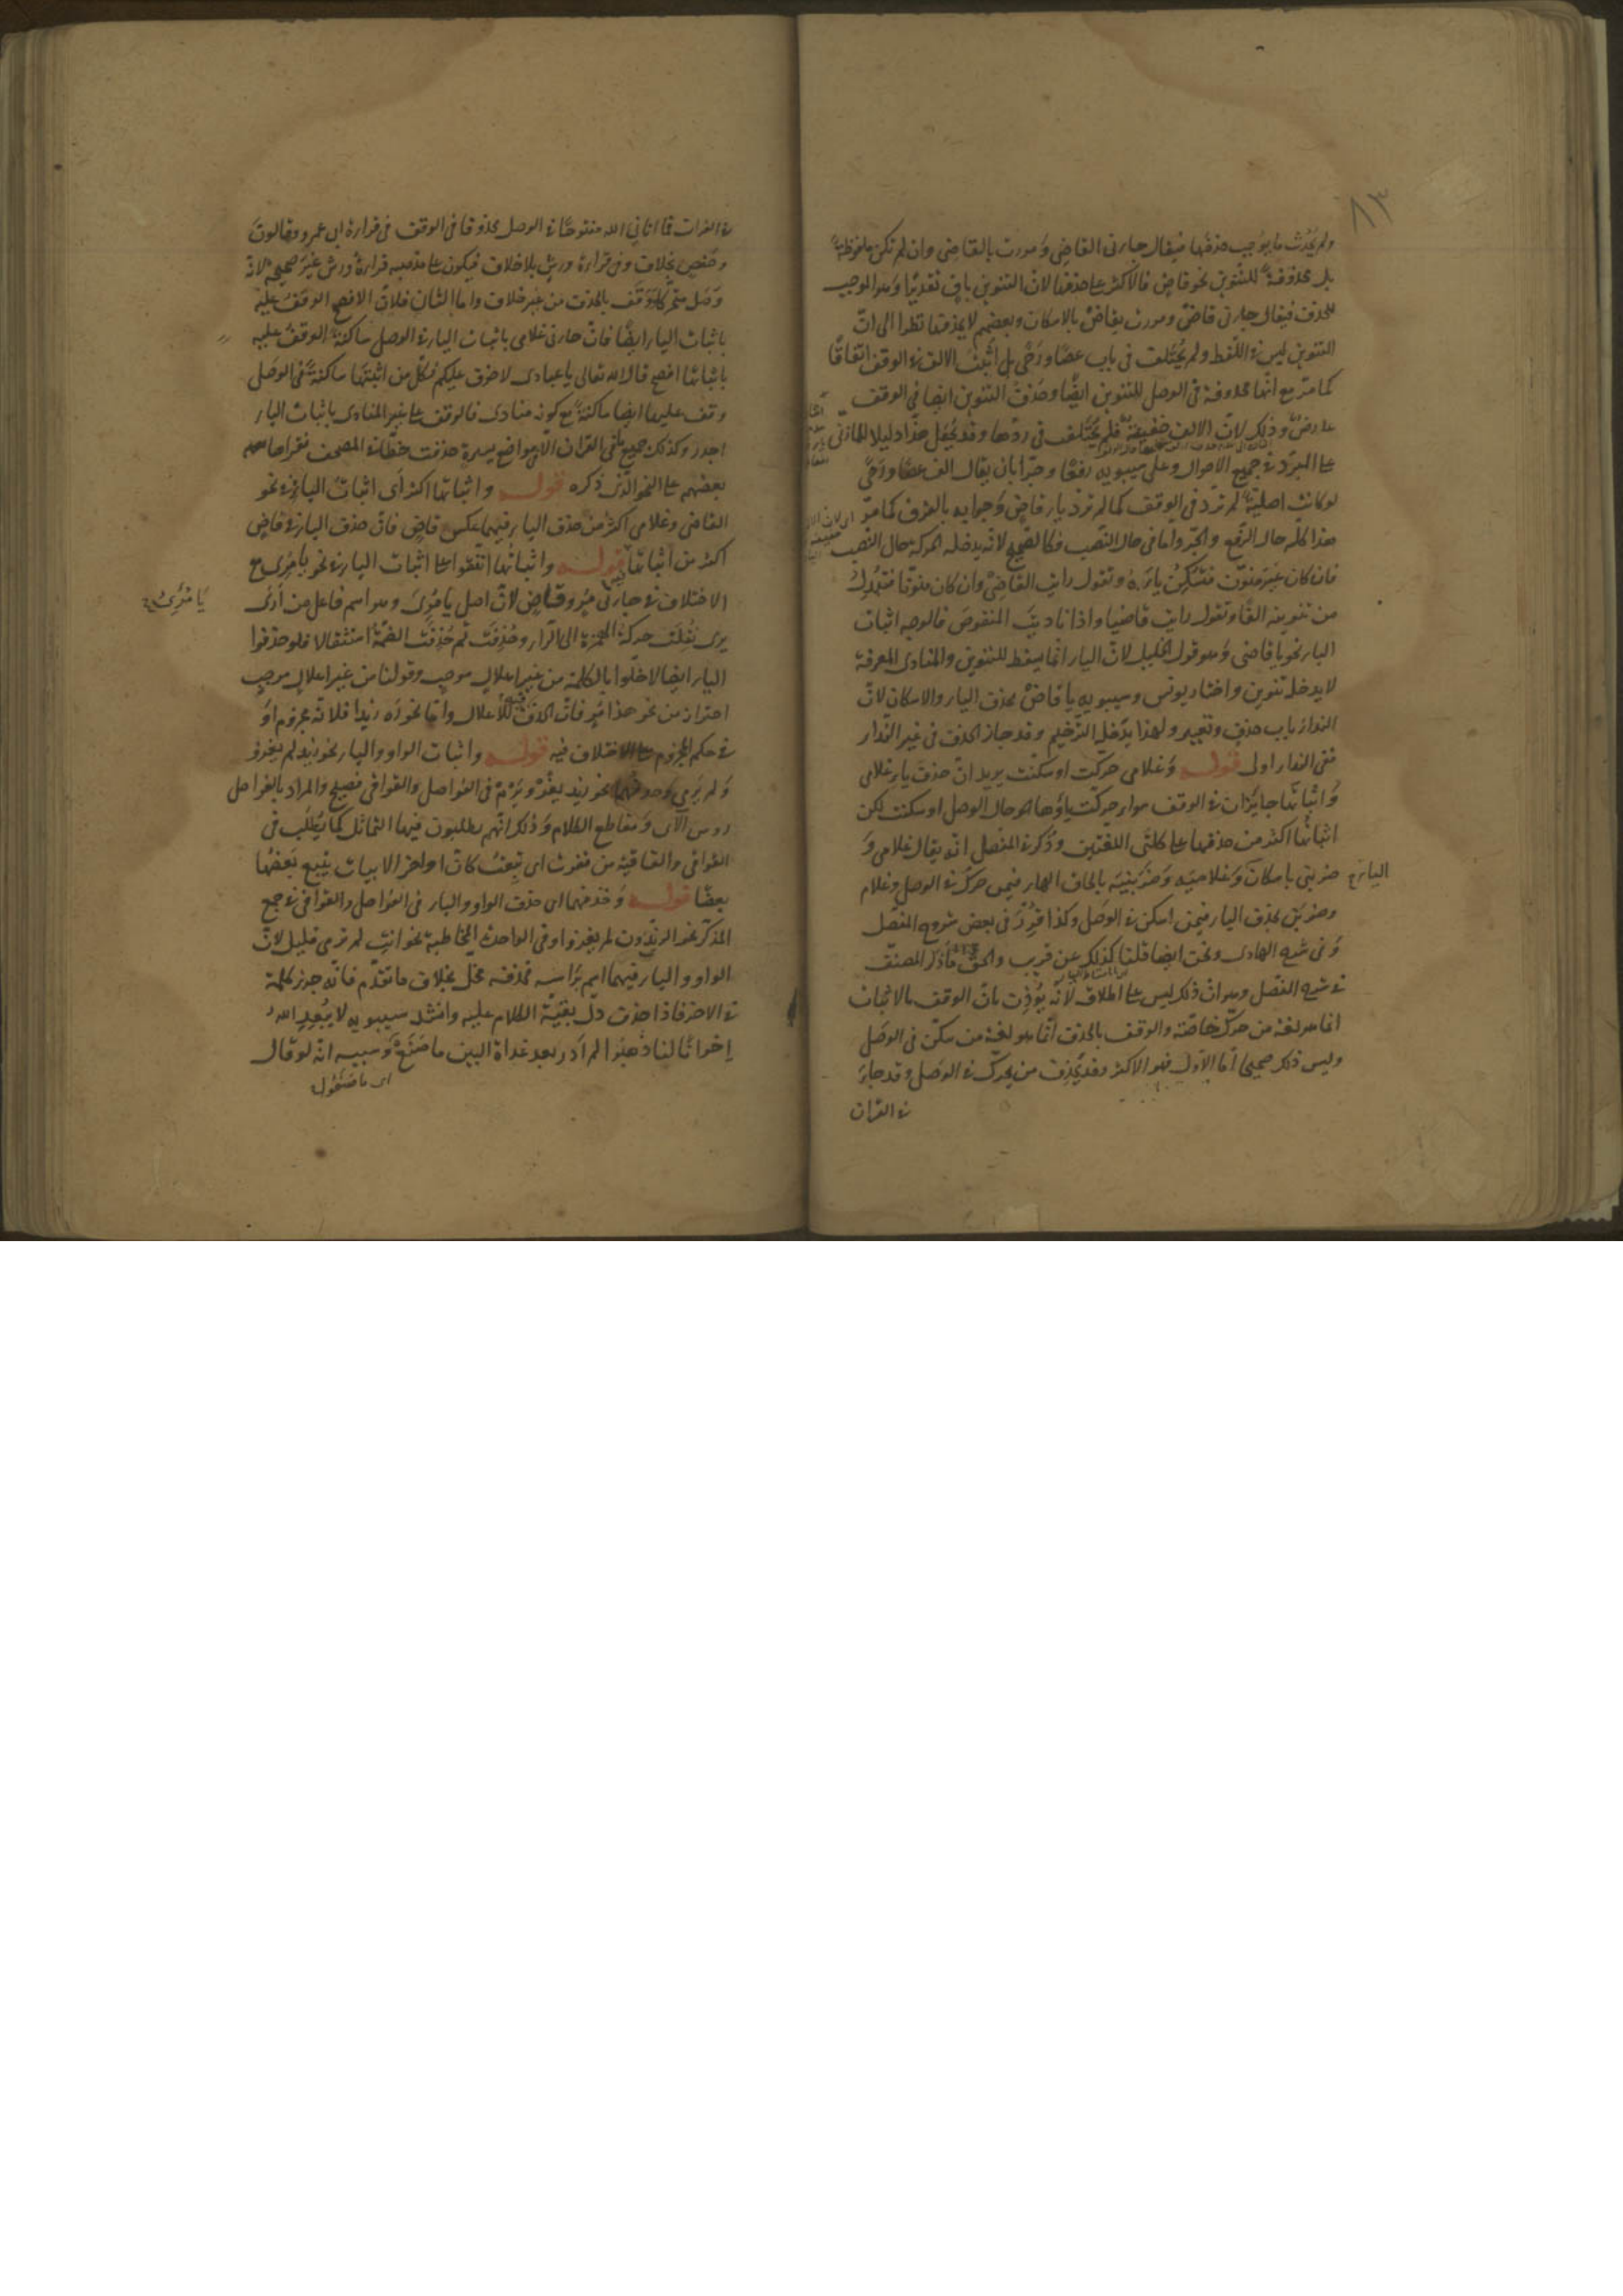 ٨٣
ولم يحدث ما يوجب حذفها فيقال جارنى القاضى ومررت بالقاضى وان لم تكن ملفوظة
بل محذوفة للتنوين نحو قاض فالاكثر على حذفها لان التنوين باق تقديرا وهو الموجب
للحذف فيقال جارنى قاض ومررت بقاض بالاسكان وبعضهم لا يحذفها نظرا الى ان
التنوين ليس فى اللفظ ولم يختلف فى باب عصا ورحى بل أثبت الالف فى الوقف اتفاقا
كما مر مع انها محذوفة فى الوصل للتنوين ايضا وحذف التنوين ايضا فى الوقف
عارض وذلك لان الالف خفيفة فلم يختلف فى ردها وقد يجعل هذا دليلا للمازنى
على المبرد فى جميع الاحوال وعلى سيبويه رفعا وجرا بان يقال الف عصا ورحى
لو كانت اصلية لم ترد فى الوقف كما لم ترد يار قاض وجوابه بالفرق كما مر
هذا كله حال الرفع والجر واما فى حال النصب فكالصحيح لانه يدخله الحركة حال النصب
فان كان غير منون فتسكن ياءه وتقول رايت القاضى وان كان منونا فتبدل
من تنوينه الفا وتقول رايت قاضيا واذا ناديت المنقوص فالوجه اثبات
اليار نحو يا قاضى وهو قول الخليل لان اليار انما يسقط للتنوين والمنادى المعرفة
لا يدخله تنوين واختار يونس وسيبويه يا قاض بحذف اليار والاسكان لان
الندار باب حذف وتغيير ولهذا يدخله الترخيم وقد جاز الحذف فى غير الندار
ففى الندار اولى قوله وغلامى حركت او سكنت يريد ان حذف يار غلامى
واثباتها جايزان فى الوقف سوار حركت ياؤها حال الوصل او سكنت لكن
اثباتها اكثر من حذفها على كلتى اللغتين وذكر فى المفصل انه يقال غلامى و
ضربنى باسكان وغلاميه وضربنيه بالحاق الهار فيمن حرك فى الوصل وغلام
وضربن بحذف اليار فيمن اسكن فى الوصل وكذا قرر فى بعض شروح المفصل
وفى شرح الهادى ونحن ايضا قلنا كذلك عن قريب والحق ما ذكر المصنف
فى شرح المفصل وهو ان ذلك ليس على اطلاقه لانه يؤذن بان الوقف بالاثبات
انما هو لغة من حرك خاصة والوقف بالحذف انما هو لغة من سكن فى الوصل
وليس ذلك صحيحا اما الاول فهو الاكثر وقد يحذف من يحرك فى الوصل وقد جاء
فى القران
فى القران فما اتانى الله مفتوحا فى الوصل محذوفا فى الوقف فى قرارة ابى عمرو وقالون
وحفص بخلاف وفى قرارة ورش بلا خلاف فيكون على مذهبه قرارة ورش غير صحيح لانه
وصل متحركا ووقف بالحذف من غير خلاف واما الثانى فلان الافصح الوقف عليه
باثبات اليار ايضا فان جارنى غلامى باثبات اليار فى الوصل ساكنة الوقف عليه
باثباتها افصح قال الله تعالى يا عبادى لا خوف عليكم فكل من اثبتها ساكنة فى الوصل
وقف عليها ايضا ساكنة مع كونه منادى فالوقف على غير المنادى باثبات اليار
اجدر وكذلك جميع ما فى القران الا مواضع يسيرة حذفت خطا فى المصحف فقراها
بعضهم على النحو الذى ذكره قوله واثباتها اكثر أى اثبات اليار فى نحو
القاضى وغلامى اكثر من حذف اليار فيهما عكس قاض فان حذف اليار فى قاض
اكثر من اثباتها قوله واثباتها اتفقوا على اثبات اليار فى نحو يا مرى مع
الاختلاف فى جارنى مر وقاض لان اصل يا مرى وهو اسم فاعل من أرى
يرى نقلت حركة الهمزة الى الرار وحذفت ثم حذفت الضمة استثقالا فلو حذفوا
اليار ايضا لاخلوا بالكلمة من غير اعلال موجب وقولنا من غير اعلال موجب
احتراز من نحو هذا مر فان الحذف فيه للاعلال واما نحو ره زيدا فلانه مجزوم او
فى حكم المجزوم على الاختلاف فيه قوله واثبات الواو واليار نحو زيد لم يغزو
ولم يرمى وحذفهما نحو زيد يغز ويرم فى الفواصل والقوافى فصيح والمراد بالفواصل
روس الآى ومقاطع الكلام وذلك انهم يطلبون فيها التماثل كما يطلب فى
القوافى والقافية من قفوت اى تبعت كان اواخر الابيات يتبع بعضها
بعضا قوله وحذفهما اى حذف الواو واليار فى الفواصل والقوافى فى جمع
المذكر نحو الزيدون لم يغزوا وفى الواحدة المخاطبة نحو انت لم ترمى قليل لان
الواو واليار فيهما اسم براسه فحذفه مخل بخلاف ما تقدم فانه جزء كلمة
فى الاخر فاذا حذف دل بقية الكلام عليه وانشد سيبويه لا يبعد الله
إخوانا لنا ذهبوا لم ادر بعد غداة البين ما صنع وسببه انه لو قال
اى ما صنعوا